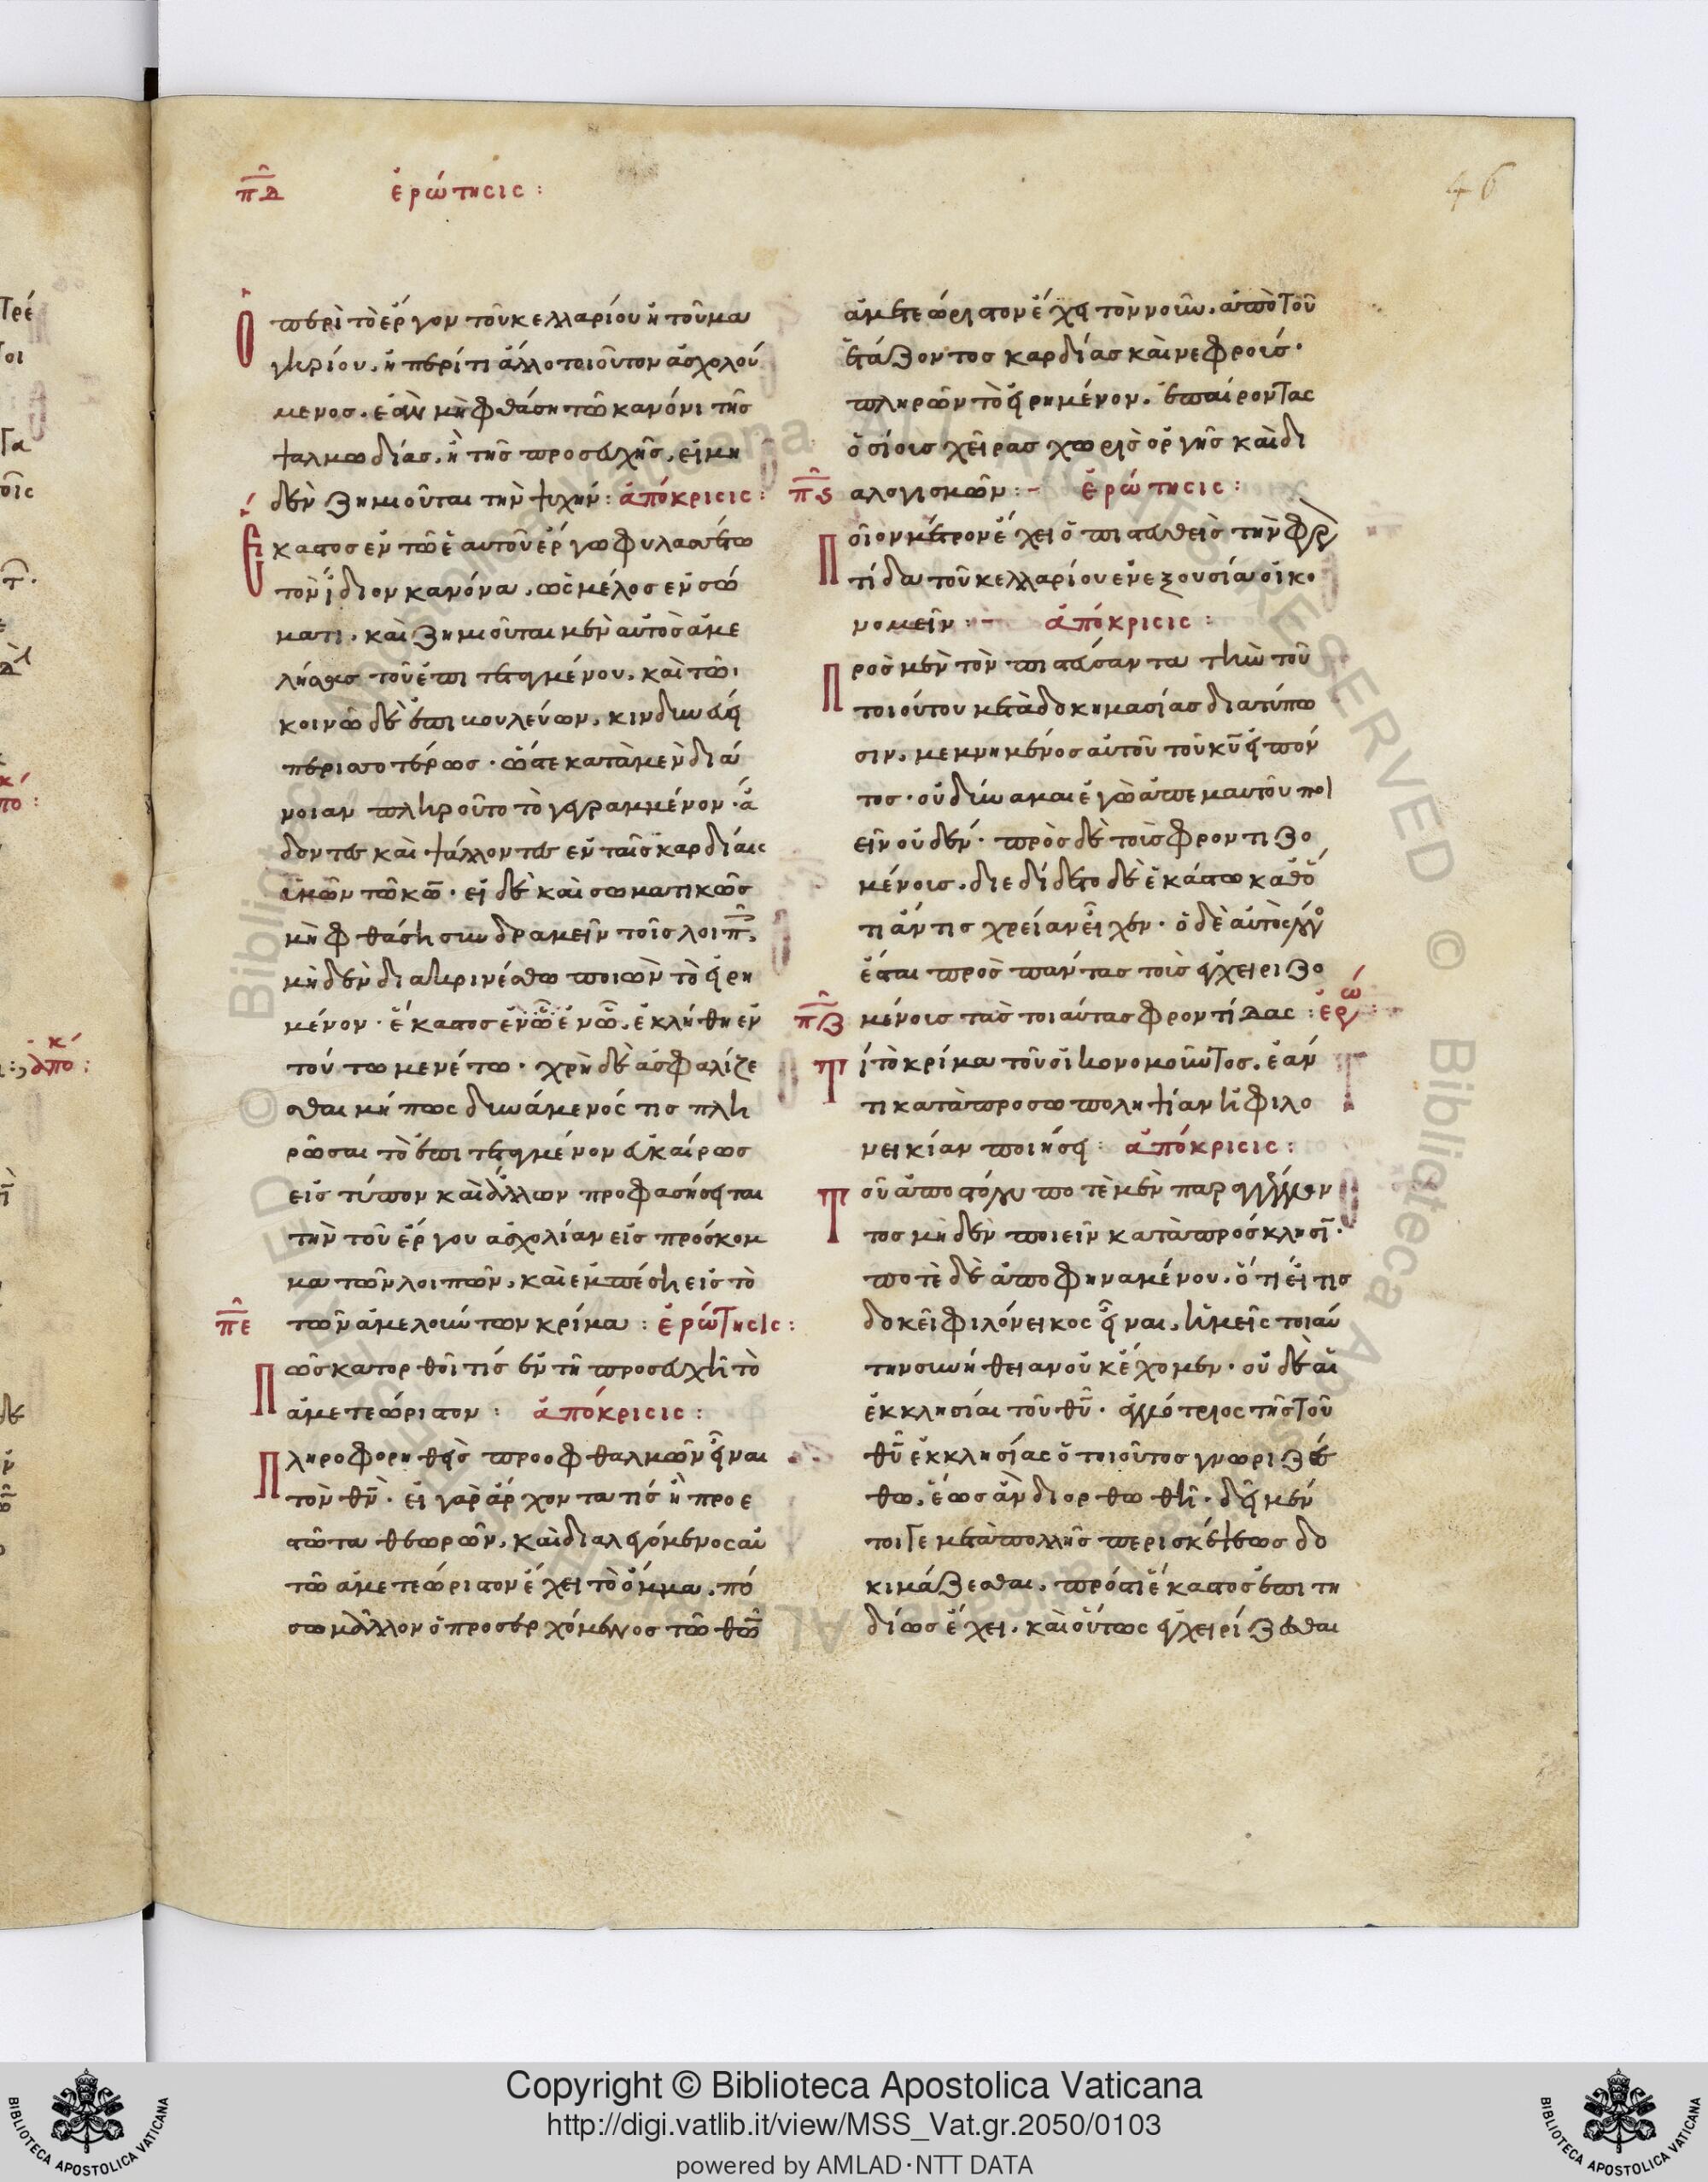 46
π̅δ̅ ἐρώτησις :
Ὁ περὶ τὸ ἔργον τοῦ κελλαρίου ἢ τοῦ μα
γηρίου, ἢ περί τι ἄλλο τοιοῦτον ἀσχολού
μενος, ἐὰν μὴ φθάση τῶ κανόνι τῆς
ψαλμωδίας, ἢ τῆς προσευχῆς, εἰ μη
δὲν ζημιοῦται τὴν ψυχήν : ἀπόκρισις :
Ἕκαστος ἐν τῶ ἑαυτοῦ ἔργω φυλασσέτω
τὸν ἴδιον κανόνα, ὡς μέλος ἐν σώ
ματι, καὶ ζημιοῦται μὲν αὐτὸς ἀμε
λήσας τοῦ ἐπιτεταγμένου, καὶ τῶ
κοινῶ δὲ ἐπιβουλεύων, κινδυνεύει
περισσοτέρως · ὥστε κατὰ μὲν διά
νοιαν πληροῦτο τὸ γεγραμμένον · ἄ
δοντες καὶ ψάλλοντες ἐν ταῖς καρδίαις
ὑμῶν τῶ κ̅ω̅ · εἰ δὲ καὶ σωματικῶς
μὴ φθάση συνδραμεῖν τοῖς λοιπ̅,
μηδὲν διακρινέσθω ποιῶν τὸ εἰρη
μένον · ἕκαστος ἐν ὧ ἐν ὧ ἐκλήθη ἐν
τούτω μενέτω · χρὴ δὲ ἀσφαλίζε
σθαι μή πως δυνάμενός τις πλη
ρῶσαι τὸ ἐπιτεταγμένον εὐκαίρως
εἰς τύπον καὶ ἄλλων προφασήσηται
τὴν τοῦ ἔργου ἀσχολίαν εἰς πρόσκομ
μα τῶν λοιπῶν, καὶ ἐμπέση εἰς τὸ
π̅ε̅ τῶν ἀμελούντων κρίμα : ἐρώτησις :
Πῶς κατορθοῖ τίς ἐν τῆ προσευχῆ τὸ
ἀμετεώριστον : ἀπόκρισις :
Πληροφορηθεὶς πρὸ ὀφθαλμῶν εἶναι
τὸν θ̅ν̅ · εἰ γὰρ ἄρχοντα τίς ἢ προε
στῶτα θεωρῶν, καὶ διαλεγόμενος αὐ
τῶ ἀμετεώριστον ἔχει τὸ ὄμμα, πό
σω μᾶλλον ὁ προσερχόμενος τῶ θ̅ω̅
ἀμετεώριστον ἔχει τὸν νοῦν, ἀπὸ τοῦ
ἐτάζοντος καρδίας καὶ νεφρούς ·
πληρῶν τὸ εἰρημένον, ἐπαίροντας
ὁσίους χεῖρας χωρὶς ὀργῆς καὶ δι
π̅ς̅ αλογισμῶν : - ἐρώτησις :
Ποῖον μέτρον ἔχει ὁ πιστευθεὶς τὴν φρ
τίδα τοῦ κελλαρίου ἐν ἐξουσία οἰκο
νομεῖν : - ἀπόκρισις :
Πρὸς μὲν τὸν πιστεύσαντα τὴν τοῦ
τοιούτου μετὰ δοκημασίας διατύπω
σιν, μεμνημένος αὐτοῦ τοῦ κ̅υ̅ εἰπόν
τος · οὐ δύναμαι ἐγὼ ἀπ' ἐμαυτοῦ ποι
εῖν οὐδέν · πρὸς δὲ τοὺς φροντιζο
μένοις, διεδίδετο δὲ ἑκάστω καθό
τι ἄν τις χρείαν εἶχεν · ὁ δὲ αὐτὸς λόγ
ἔσται πρὸς πάντας τοὺς ἐγχειριζο
π̅ζ̅ μένοις τὰς τοιαύτας φροντίδας : ἐρώ
Τί τὸ κρίμα τοῦ οἰκονομοῦντος, ἐάν
τι κατὰ προσωποληψίαν ἢ φιλο
νεικίαν ποιήση : ἀπόκρισις :
Τοῦ ἀποστόλου ποτὲ μὲν παραγγείλαν
τος μηδὲν ποιεῖν κατὰ πρόσκλησι̅ ·
ποτὲ δὲ ἀποφηναμένου, ὅτι εἴ τις
δοκεῖ φιλόνεικος εἶναι, ἡμεῖς τοιαύ
την συνήθειαν οὐκ ἔχομεν · οὐδὲ αἱ
ἐκκλησίαι τοῦ θ̅υ̅ · ἀλλότριος τῆς τοῦ
θ̅υ̅ ἐκκλησίας ὁ τοιοῦτος γνωριζέσ
θω, ἕως ἂν διορθωθῆ · δεῖ μέν
τοι γε μετὰ πολλῆς περισκέψεως δο
κιμάζεσθαι, πρὸς τί ἕκαστος ἐπιτη
δίως ἔχει, καὶ οὕτως ἐγχειρίζεσθαι
Copyright © Biblioteca Apostolica Vaticana
http://digi.vatlib.it/view/MSS_Vat.gr.2050/0103
powered by AMLAD·NTT DATA
BIBLIOTECA APOSTOLICA VATICANA
BIBLIOTECA APOSTOLICA VATICANA